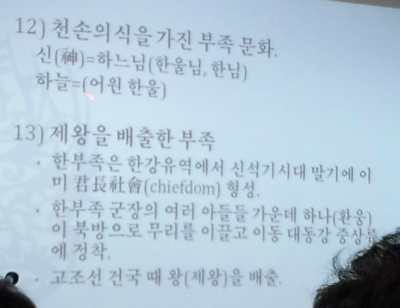 12) 천손의식을 가진 부족 문화.
신(神)=하느님(한울님, 한님)
하늘=(어원 한울)
13) 제왕을 배출한 부족
• 한부족은 한강유역에서 신석기시대 말기에 이
미 君長社會(chiefdom) 형성.
• 한부족 군장의 여러 아들들 가운데 하나(환웅)
이 북방으로 무리를 이끌고 이동 대동강 중상류
에 정착.
• 고조선 건국 때 왕(제왕)을 배출.